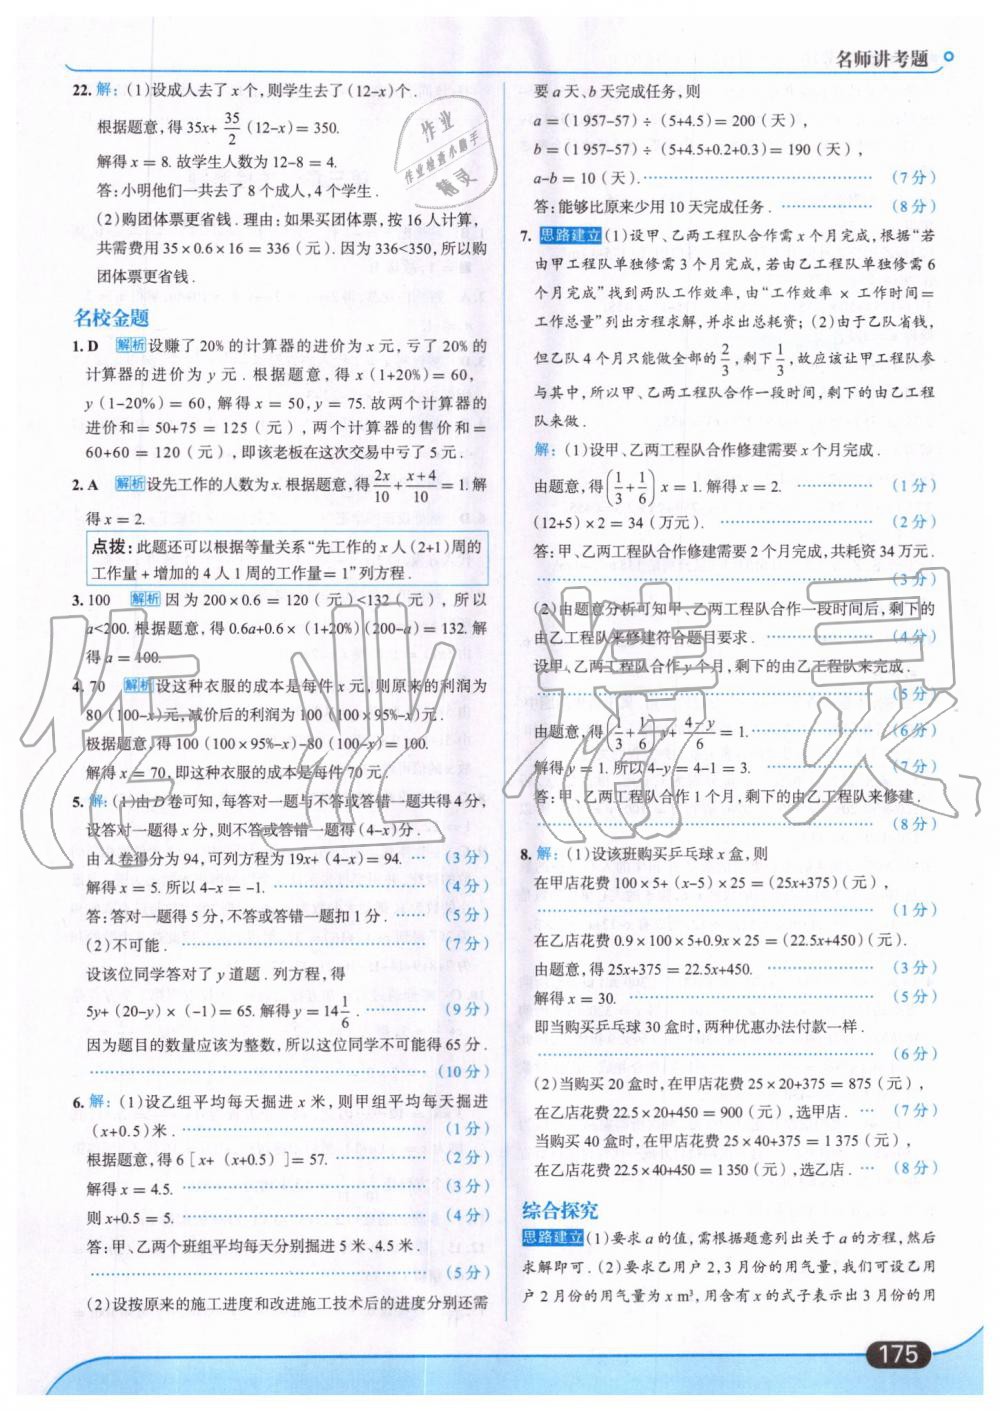 名师讲考题
22. 解:(1)设成人去了 x 个,则学生去了(12-x)个.
根据题意,得 35x+35/2(12-x)=350.
解得 x=8. 故学生人数为 12-8=4.
答:小明他们一共去了 8 个成人,4 个学生.
(2)购团体票更省钱. 理由:如果买团体票,按 16 人计算,
共需费用 35×0.6×16=336(元). 因为 336<350,所以购
团体票更省钱.
名校金题
1. D 解析 设赚了 20% 的计算器的进价为 x 元,亏了 20% 的
计算器的进价为 y 元. 根据题意,得 x(1+20%)=60,
y(1-20%)=60,解得 x=50,y=75. 故两个计算器的
进价和=50+75=125(元),两个计算器的售价和=
60+60=120(元),即该老板在这次交易中亏了 5 元.
2. A 解析 设先工作的人数为 x. 根据题意,得 2x/10+(x+4)/10=1. 解
得 x=2.
点拨:此题还可以根据等量关系“先工作的 x 人(2+1)周的
工作量+增加的 4 人 1 周的工作量=1”列方程.
3. 100 解析 因为 200×0.6=120(元)<132(元),所以
a<200. 根据题意,得 0.6a+0.6×(1+20%)(200-a)=132. 解
得 a=100.
4. 70 解析 设这种衣服的成本是每件 x 元,则原来的利润为
80(100-x)元,减价后的利润为 100(100×95%-x)元.
极据题意,得 100(100×95%-x)-80(100-x)=100.
解得 x=70,即这种衣服的成本是每件 70 元.
5. 解:(1)由 D 卷可知,每答对一题与不答或答错一题共得 4 分,
设答对一题得 x 分,则不答或答错一题得(4-x)分.
由 A 卷得分为 94,可列方程为 19x+(4-x)=94. …(3 分)
解得 x=5. 所以 4-x=-1. …(4 分)
答:答对一题得 5 分,不答或答错一题扣 1 分. …(5 分)
(2)不可能. …(7 分)
设该位同学答对了 y 道题. 列方程,得
5y+(20-y)×(-1)=65. 解得 y=14 1/6. …(9 分)
因为题目的数量应该为整数,所以这位同学不可能得 65 分.
…(10 分)
6. 解:(1)设乙组平均每天掘进 x 米,则甲组平均每天掘进
(x+0.5)米. …(1 分)
根据题意,得 6[x+(x+0.5)]=57. …(2 分)
解得 x=4.5. …(3 分)
则 x+0.5=5. …(4 分)
答:甲、乙两个班组平均每天分别掘进 5 米、4.5 米.
…(5 分)
(2)设按原来的施工进度和改进施工技术后的进度分别还需
要 a 天、b 天完成任务,则
a=(1 957-57)÷(5+4.5)=200(天),
b=(1 957-57)÷(5+4.5+0.2+0.3)=190(天),
a-b=10(天). …(7 分)
答:能够比原来少用 10 天完成任务. …(8 分)
7. 思路建立 (1)设甲、乙两工程队合作需 x 个月完成,根据“若
由甲工程队单独修需 3 个月完成,若由乙工程队单独修需 6
个月完成”找到两队工作效率,由“工作效率 × 工作时间=
工作总量”列出方程求解,并求出总耗资;(2)由于乙队省钱,
但乙队 4 个月只能做全部的 2/3,剩下 1/3,故应该让甲工程队参
与其中,所以甲、乙两工程队合作一段时间,剩下的由乙工程
队来做.
解:(1)设甲、乙两工程队合作修建需要 x 个月完成.
由题意,得(1/3+1/6)x=1. 解得 x=2. …(1 分)
(12+5)×2=34(万元). …(2 分)
答:甲、乙两工程队合作修建需要 2 个月完成,共耗资 34 万元.
…(3 分)
(2)由题意分析可知甲、乙两工程队合作一段时间后,剩下的
由乙工程队来修建符合题目要求. …(4 分)
设甲、乙两工程队合作 y 个月,剩下的由乙工程队来完成.
…(5 分)
由题意,得(1/3+1/6)y+(4-y)/6=1. …(6 分)
解得 y=1. 所以 4-y=4-1=3. …(7 分)
答:甲、乙两工程队合作 1 个月,剩下的由乙工程队来修建.
…(8 分)
8. 解:(1)设该班购买乒乓球 x 盒,则
在甲店花费 100×5+(x-5)×25=(25x+375)(元),
…(1 分)
在乙店花费 0.9×100×5+0.9x×25=(22.5x+450)(元).
由题意,得 25x+375=22.5x+450. …(3 分)
解得 x=30. …(5 分)
即当购买乒乓球 30 盒时,两种优惠办法付款一样.
…(6 分)
(2)当购买 20 盒时,在甲店花费 25×20+375=875(元),
在乙店花费 22.5×20+450=900(元),选甲店. …(7 分)
当购买 40 盒时,在甲店花费 25×40+375=1 375(元),
在乙店花费 22.5×40+450=1 350(元),选乙店. …(8 分)
综合探究
思路建立 (1)要求 a 的值,需根据题意列出关于 a 的方程,然后
求解即可. (2)要求乙用户 2,3 月份的用气量,我们可设乙用
户 2 月份的用气量为 x m³,用含有 x 的式子表示出 3 月份的用
175
作业
作业检查小助手
精灵
作业精灵